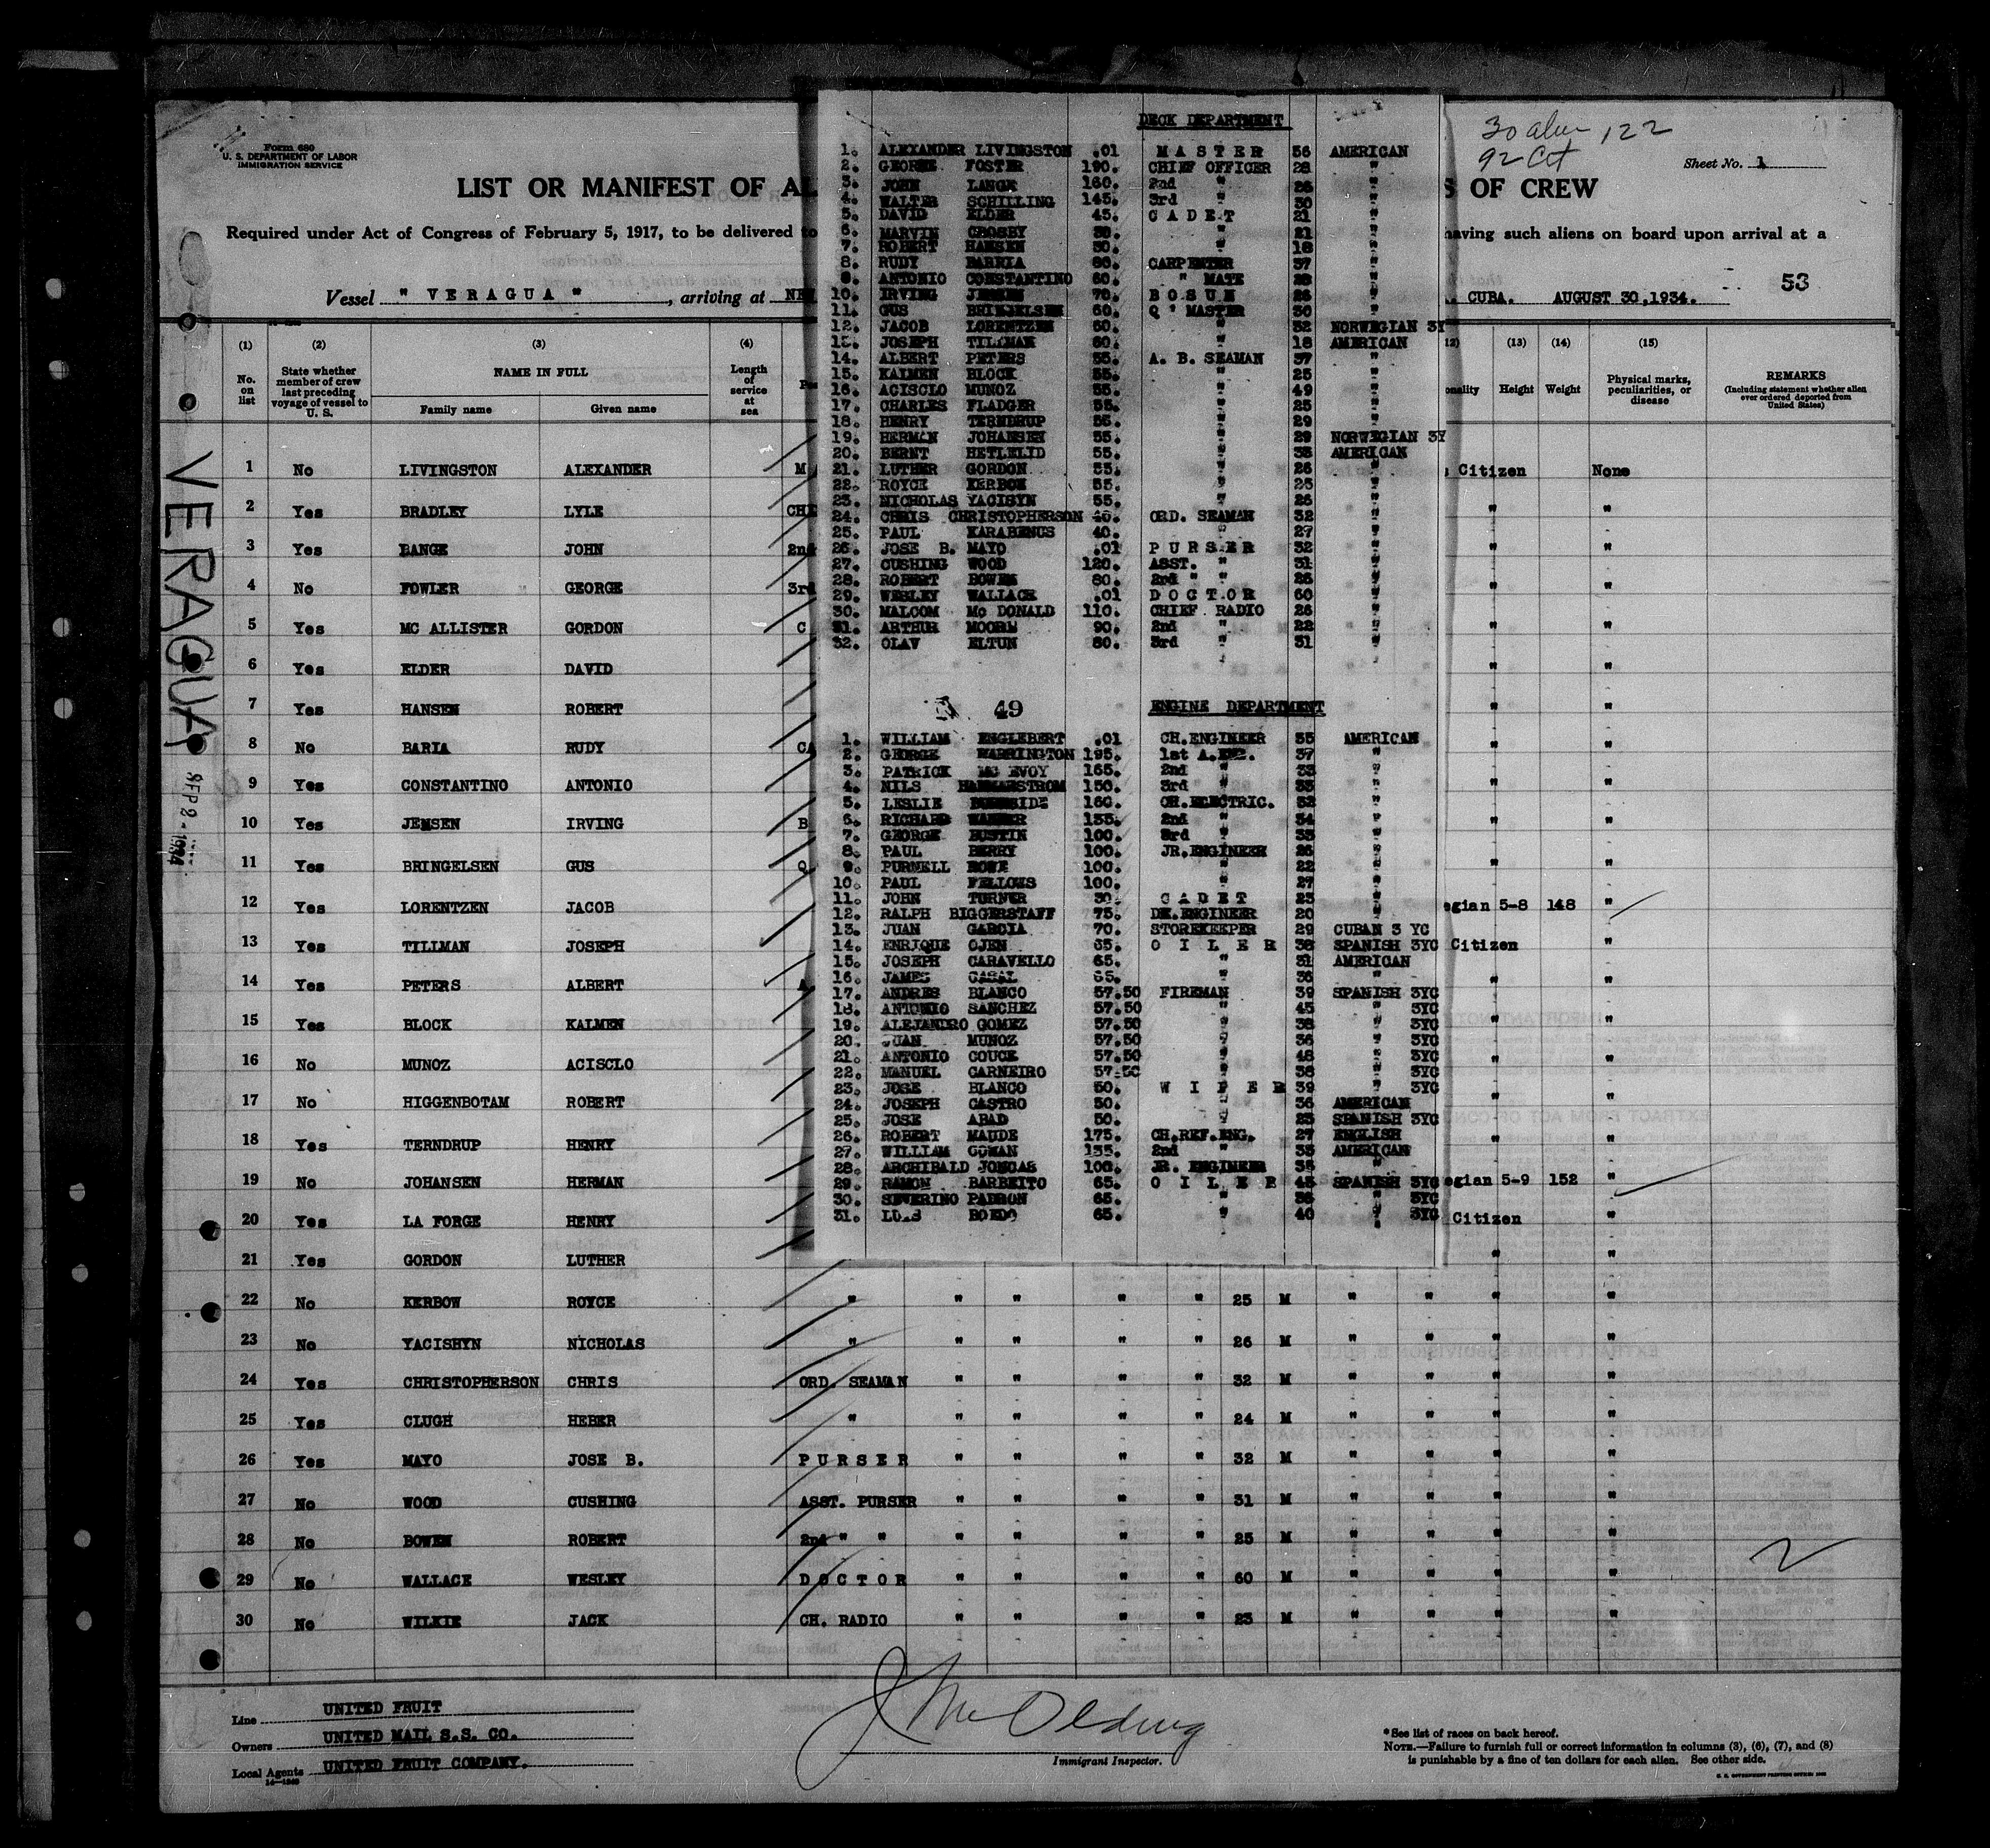 Form 680
U. S. DEPARTMENT OF LABOR
IMMIGRATION SERVICE
30 alien 122
92 Cit
Sheet No. 1
LIST OR MANIFEST OF AL
S OF CREW
Required under Act of Congress of February 5, 1917, to be delivered to
having such aliens on board upon arrival at a
53
Vessel " VERAGUA " , arriving at NE
CUBA. AUGUST 30, 1934.
(1) (2) (3) (4) (13) (14) (15)
No. on list
State whether member of crew last preceding voyage of vessel to U. S.
NAME IN FULL
Family name Given name
Length of service at sea
Height Weight
Physical marks, peculiarities, or disease
REMARKS
(Including statement whether alien ever ordered deported from United States)
VERAGUA
SEP 2 - 1934
1 No LIVINGSTON ALEXANDER M Citizen None
2 Yes BRADLEY LYLE CHI " "
3 Yes BANGE JOHN 2nd " "
4 No FOWLER GEORGE 3rd " "
5 Yes MC ALLISTER GORDON C " "
6 Yes ELDER DAVID " "
7 Yes HANSEN ROBERT " "
8 No BARIA RUDY CA " "
9 Yes CONSTANTINO ANTONIO " "
10 Yes JENSEN IRVING B " "
11 Yes BRINGELSEN GUS Q " "
12 Yes LORENTZEN JACOB egian 5-8 148 "
13 Yes TILLMAN JOSEPH Citizen "
14 Yes PETERS ALBERT A " "
15 Yes BLOCK KALMEN " "
16 No MUNOZ ACISCLO " "
17 No HIGGENBOTAM ROBERT " "
18 Yes TERNDRUP HENRY " "
19 No JOHANSEN HERMAN egian 5-9 152 "
20 Yes LA FORGE HENRY Citizen "
21 Yes GORDON LUTHER " "
22 No KERBOW ROYCE " " " " " 25 M " " " "
23 No YACISHYN NICHOLAS " " " " " 26 M " " " "
24 Yes CHRISTOPHERSON CHRIS ORD. SEAMAN " " " " 32 M " " " "
25 Yes CLUGH HEBER " " " " " 24 M " " " "
26 Yes MAYO JOSE B. PURSER " " " " 32 M " " " "
27 No WOOD CUSHING ASST. PURSER " " " " 31 M " " " "
28 No BOWEN ROBERT 2nd " " " " " " 25 M " " " "
29 No WALLACE WESLEY DOCTOR " " " " 60 M " " " "
30 No WILKIE JACK CH. RADIO " " " " 23 M " " " "
DECK DEPARTMENT
1. ALEXANDER LIVINGSTON .01 MASTER 56 AMERICAN
2. GEORGE FOSTER 190. CHIEF OFFICER 28 "
3. JOHN LANGE 160. 2nd " 26 "
4. WALTER SCHILLING 145. 3rd " 30 "
5. DAVID ELDER 45. CADET 21 "
6. MARVIN CROSBY 30. " 21 "
7. ROBERT HANSEN 30. " 18 "
8. RUDY BARRIA 80. CARPENTER 37 "
9. ANTONIO CONSTANTINO 60. " MATE 28 "
10. IRVING JENSEN 70. BOSUN 26 "
11. GUS BRINGELSEN 60. Q ' MASTER 30 "
12. JACOB LORENTZEN 60. " 32 NORWEGIAN 3Y
13. JOSEPH TILLMAN 60. " 18 AMERICAN
14. ALBERT PETERS 55. A. B. SEAMAN 37 "
15. KALMEN BLOCK 55. " 25 "
16. ACISCLO MUNOZ 55. " 49 "
17. CHARLES FLADGER 55. " 25 "
18. HENRY TERNDRUP 55. " 29 "
19. HERMAN JOHANSEN 55. " 29 NORWEGIAN 3Y
20. BERNT HETLELID 55. " 35 AMERICAN
21. LUTHER GORDON 55. " 26 "
22. ROYCE KERBOW 55. " 25 "
23. NICHOLAS YACISYN 55. " 26 "
24. CHRIS CHRISTOPHERSON 40. ORD. SEAMAN 32 "
25. PAUL KARABENUS 40. " 27 "
26. JOSE B. MAYO .01 PURSER 32 "
27. CUSHING WOOD 120. ASST. " 31 "
28. ROBERT BOWEN 80. 2nd " " 26 "
29. WESLEY WALLACE .01 DOCTOR 60 "
30. MALCOM Mc DONALD 110. CHIEF RADIO 26 "
31. ARTHUR MOORE 90. 2nd " 22 "
32. OLAV ELTUN 80. 3rd " 31 "
49 ENGINE DEPARTMENT
1. WILLIAM ENGLEBERT .01 CH.ENGINEER 55 AMERICAN
2. GEORGE WARRINGTON 195. 1st A.ENG. 37 "
3. PATRICK MC EVOY 165. 2nd " 33 "
4. NILS HAMMARSTROM 150. 3rd " 35 "
5. LESLIE 160. CH.ELECTRIC. 32 "
6. RICHARD 135. 2nd " 34 "
7. GEORGE BUSTIN 100. 3rd " 33 "
8. PAUL BERRY 100. JR.ENGINEER 26 "
9. PURNELL ROWE 100. " 22 "
10. PAUL FELLOWS 100. " 27 "
11. JOHN TURNER 30. CADET 23 "
12. RALPH BIGGERSTAFF 75. DK.ENGINEER 20 "
13. JUAN GARCIA 70. STOREKEEPER 29 CUBAN 3 YC
14. ENRIQUE OJEN 65. OILER 38 SPANISH 3YC
15. JOSEPH CARAVELLO 65. " 31 AMERICAN
16. JAMES CASAL 65. " 36 "
17. ANDRES BLANCO 57.50 FIREMAN 39 SPANISH 3YC
18. ANTONIO SANCHEZ 57.50 " 45 " 3YC
19. ALEJANDRO GOMEZ 57.50 " 38 " 3YC
20. JUAN MUNOZ 57.50 " 36 " 3YC
21. ANTONIO COUCE 57.50 " 48 " 3YC
22. MANUEL CARNEIRO 57.50 " 38 " 3YC
23. JOSE BLANCO 50. WIPER 39 " 3YC
24. JOSEPH CASTRO 50. " 36 AMERICAN
25. JOSE ABAD 50. " 23 SPANISH 3YC
26. ROBERT MAUDE 175. CH.REF.ENG. 27 ENGLISH
27. WILLIAM GOWAN 135. 2nd " 33 AMERICAN
28. ARCHIBALD JONCAS 100. JR. ENGINEER 35 "
29. RAMON BARBEITO 65. OILER 43 SPANISH 3YC
30. SEVERINO PADRON 65. " 36 " 3YC
31. LUIS BOEDO 65. " 40 " 3YC
Line UNITED FRUIT
Owners UNITED MAIL S.S. CO.
Local Agents UNITED FRUIT COMPANY.
14—1240
Immigrant Inspector.
*See list of races on back hereof.
NOTE.—Failure to furnish full or correct information in columns (3), (6), (7), and (8)
is punishable by a fine of ten dollars for each alien. See other side.